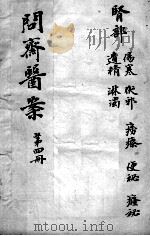 腎部
傷寒 伏邪 便秘 癃秘
遺精 淋濁
問齋醫案
第四冊
mtoou.info